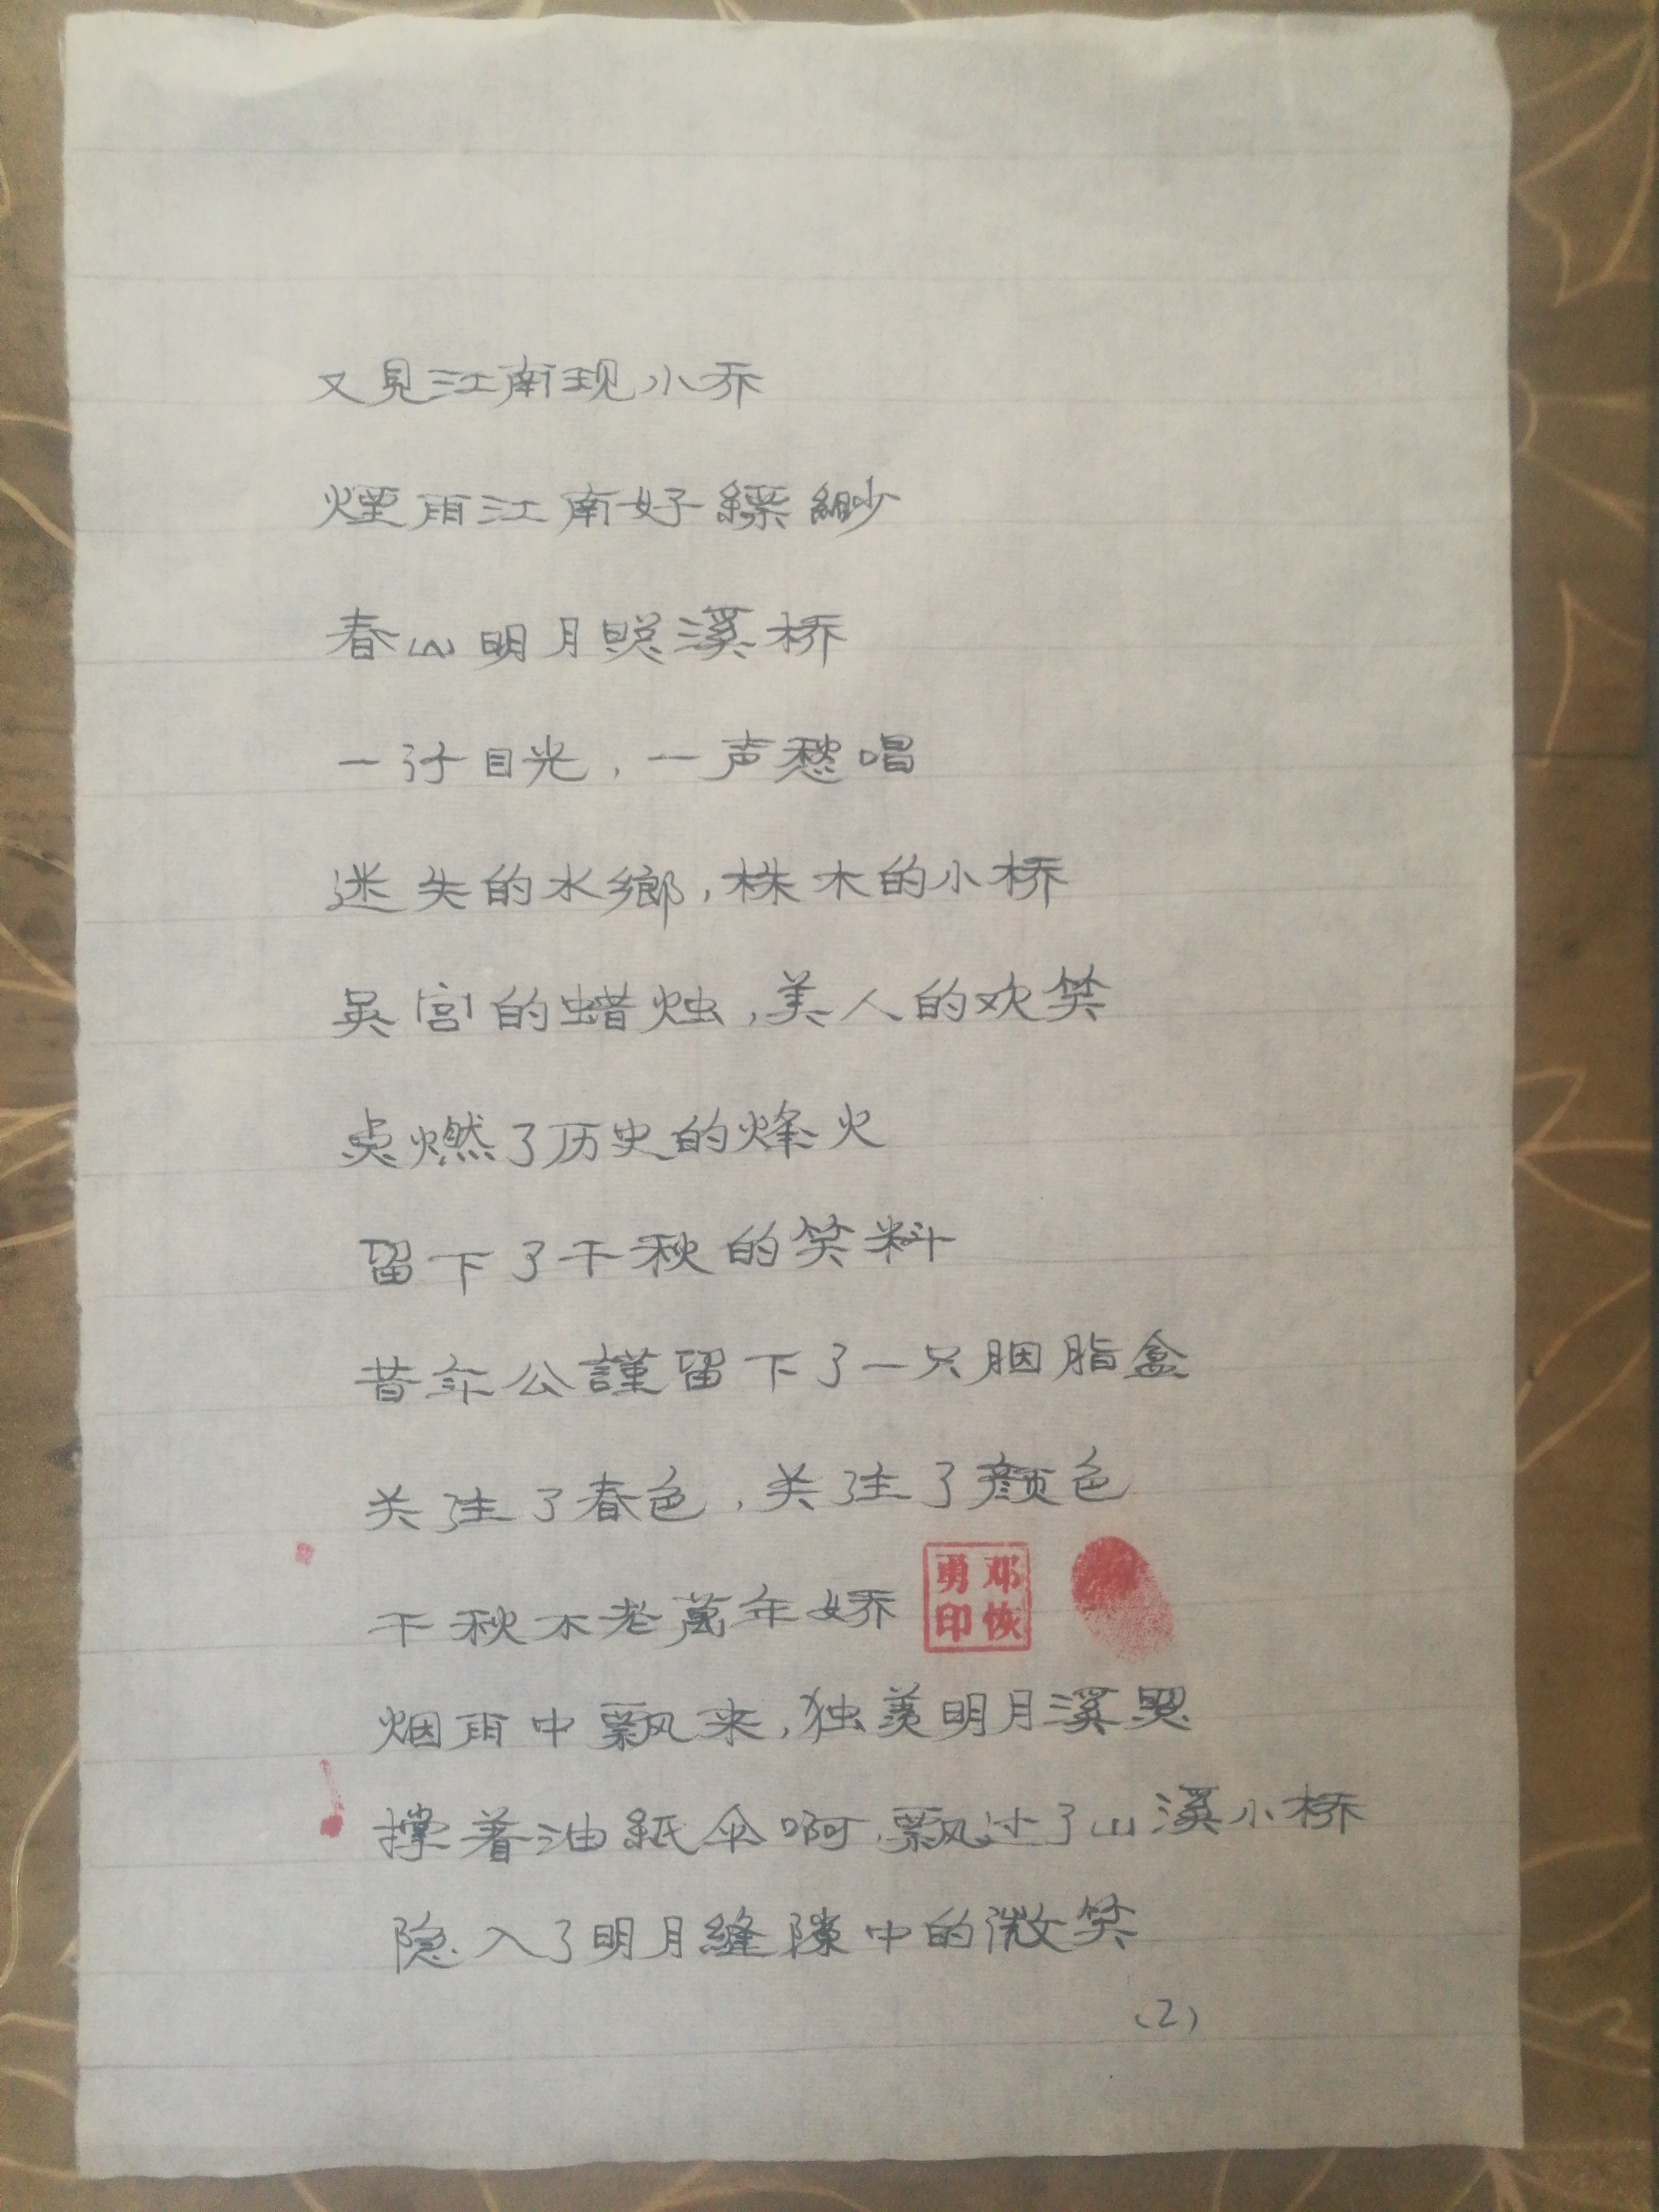 又見江南现小乔
煙雨江南好縹緲
春山明月照溪桥
一汻目光，一声愁唱
迷失的水鄉，株木的小桥
吴宫的蜡烛，美人的欢笑
点燃了历史的烽火
留下了千秋的笑料
昔年公謹留下了一只胭脂盒
关注了春色，关注了颜色
千秋不老萬年娇
勇邓
印恢
烟雨中飘来，独羡明月溪照
撑着油紙伞啊，飘过了山溪小桥
隐入了明月縫隙中的微笑
（2）